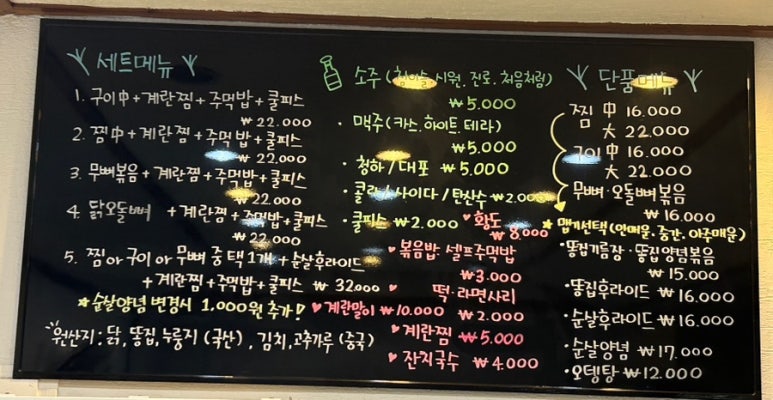 세트메뉴
1. 구이 中 + 계란찜 + 주먹밥 + 쿨피스
₩ 22.000
2. 찜 中 + 계란찜 + 주먹밥 + 쿨피스
₩ 22.000
3. 무뼈볶음 + 계란찜 + 주먹밥 + 쿨피스
₩ 22.000
4. 닭오돌뼈 + 계란찜 + 주먹밥 + 쿨피스
₩ 22.000
5. 찜 or 구이 or 무뼈 중 택 1개 + 순살후라이드
+ 계란찜 + 주먹밥 + 쿨피스 ₩ 32.000
★순살양념 변경시 1,000원 추가!
원산지 : 닭, 똥집, 누룽지 (국산), 김치, 고추가루 (중국)
소주 (참이슬, 시원, 진로, 처음처럼)
₩5.000
· 맥주 (카스, 하이트, 테라)
₩5.000
· 청하 / 대포 ₩5.000
· 콜라 / 사이다 / 탄산수 ₩2.000
· 쿨피스 ₩2.000
♥황도
₩8.000
♥볶음밥 셀프주먹밥
₩3.000
♥떡·라면사리
₩2.000
♥계란말이 ₩10.000
♥계란찜 ₩5.000
♥잔치국수 ₩4.000
단품메뉴
찜 中 16.000
大 22.000
구이 中 16.000
大 22.000
무뼈·오돌뼈볶음
₩16.000
★맵기선택 (안매움, 중간, 아주매움)
·똥집기름장·똥집양념볶음
₩15.000
·똥집후라이드 ₩16.000
·순살후라이드 ₩16.000
·순살양념 ₩17.000
·오뎅탕 ₩12.000